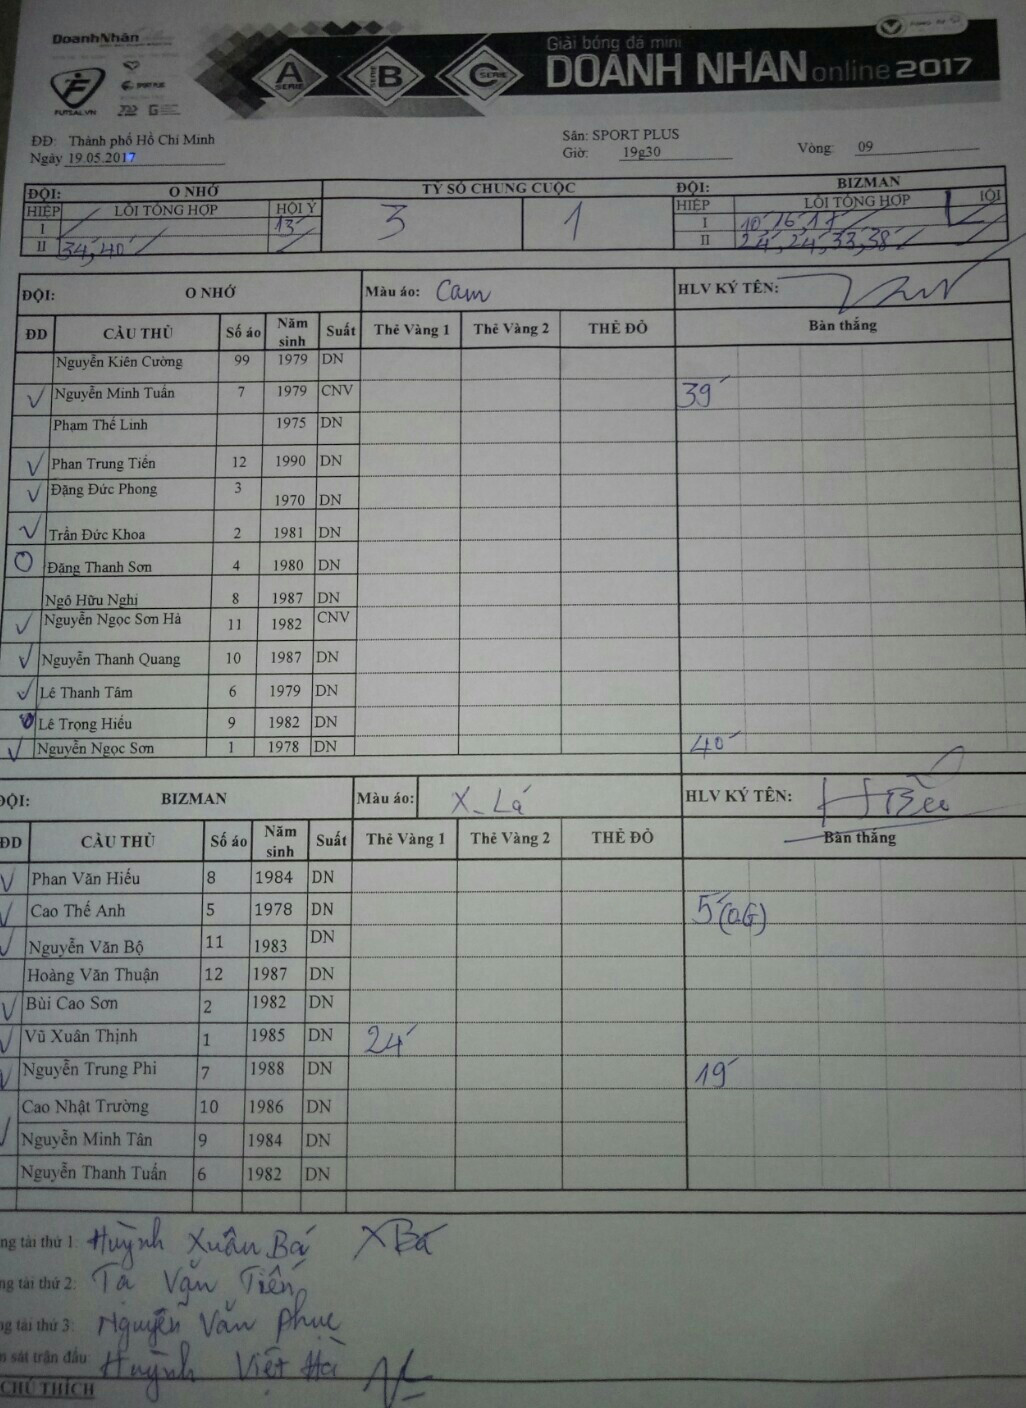 DoanhNhân
Giải bóng đá mini
DOANH NHAN online 2017
A SERIE B SERIE C SERIE
FUTSAL.VN
SPORT PLUS
ĐĐ: Thành phố Hồ Chí Minh
Ngày 19.05.2017
Sân: SPORT PLUS
Giờ: 19g30
Vòng: 09
ĐỘI: O NHỚ TỶ SỐ CHUNG CUỘC ĐỘI: BIZMAN
HIỆP LỖI TỔNG HỢP HỘI Ý 3 1 HIỆP LỖI TỔNG HỢP
I 13' I 10', 16', 17'
II 34', 40' II 24', 24', 33', 38'
ĐỘI: O NHỚ Màu áo: Cam HLV KÝ TÊN:
ĐD CẦU THỦ Số áo Năm sinh Suất Thẻ Vàng 1 Thẻ Vàng 2 THẺ ĐỎ Bàn thắng
Nguyễn Kiên Cường 99 1979 DN
Nguyễn Minh Tuấn 7 1979 CNV 39'
Phạm Thế Linh 1975 DN
Phan Trung Tiến 12 1990 DN
Đặng Đức Phong 3 1970 DN
Trần Đức Khoa 2 1981 DN
Đặng Thanh Sơn 4 1980 DN
Ngô Hữu Nghị 8 1987 DN
Nguyễn Ngọc Sơn Hà 11 1982 CNV
Nguyễn Thanh Quang 10 1987 DN
Lê Thanh Tâm 6 1979 DN
Lê Trọng Hiếu 9 1982 DN
Nguyễn Ngọc Sơn 1 1978 DN 40'
ĐỘI: BIZMAN Màu áo: X_Lá HLV KÝ TÊN:
ĐD CẦU THỦ Số áo Năm sinh Suất Thẻ Vàng 1 Thẻ Vàng 2 THẺ ĐỎ Bàn thắng
Phan Văn Hiếu 8 1984 DN
Cao Thế Anh 5 1978 DN 5'(OG)
Nguyễn Văn Bộ 11 1983 DN
Hoàng Văn Thuận 12 1987 DN
Bùi Cao Sơn 2 1982 DN
Vũ Xuân Thịnh 1 1985 DN 24'
Nguyễn Trung Phi 7 1988 DN 19'
Cao Nhật Trường 10 1986 DN
Nguyễn Minh Tân 9 1984 DN
Nguyễn Thanh Tuấn 6 1982 DN
ng tài thứ 1: Huỳnh Xuân Bá XBá
ng tài thứ 2: Tạ Văn Tiến
ng tài thứ 3: Nguyễn Văn Phục
sát trận đấu Huỳnh Việt Hà
CHÚ THÍCH